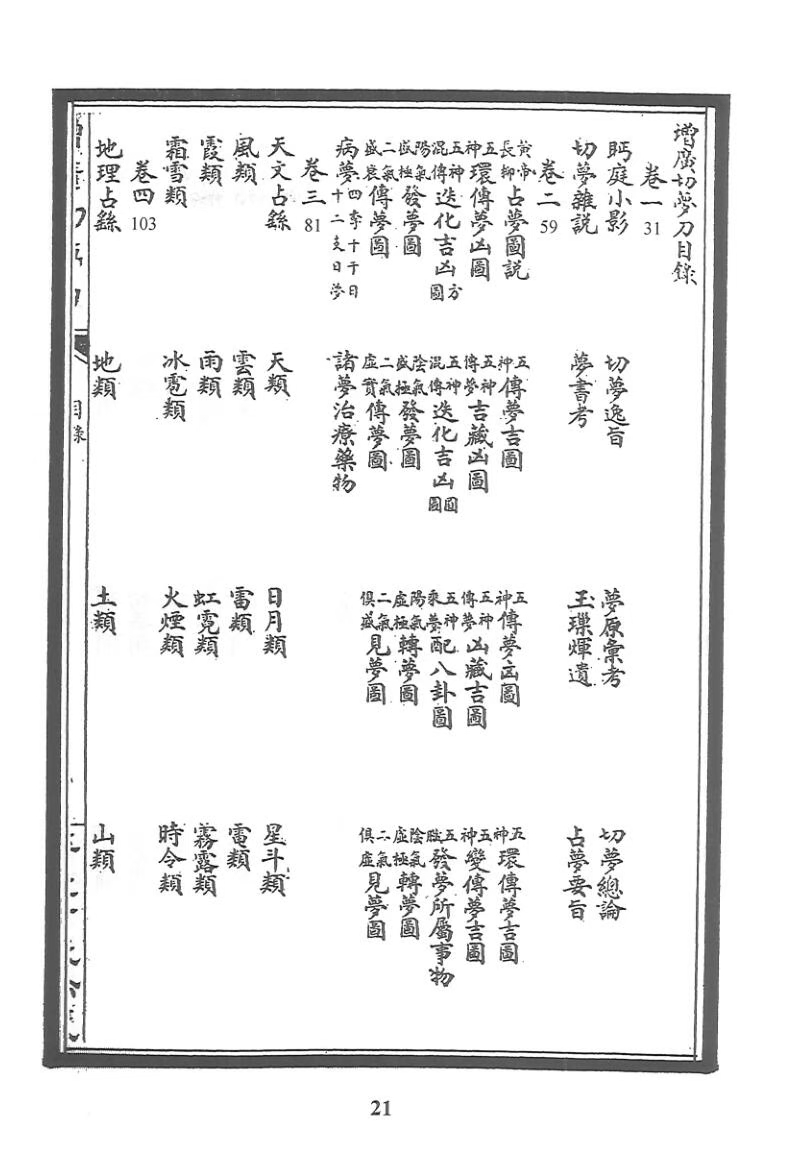 增廣切夢刀目錄
卷一 31
眄庭小影 切夢逸旨 夢原彙考 切夢總論
切夢雜説 夢書考 玉璅煇遺 占夢要旨
卷二 59
黃帝長柳占夢圖説 五神傳夢吉圖 五神傳夢凶圖 五神環傳夢吉圖
五神環傳夢凶圖 五神傳夢吉藏凶圖 五神傳夢凶藏吉圖 五神變傳夢吉圖
五神混傳迭化吉凶方圖 五神混傳迭化吉凶圓圖 五神乘夢配八卦圖 五臟發夢所屬事物
陽氣盛極發夢圖 陰氣盛極發夢圖 陽氣虛極轉夢圖 陰氣虛極轉夢圖
二氣盛衰傳夢圖 二氣虛實傳夢圖 二氣俱盛見夢圖 二氣俱虛見夢圖
病夢四季十干日十二支日夢 諸夢治療藥物
卷三 81
天文占繇 天類 日月類 星斗類
風類 雲類 雷類 電類
霞類 雨類 虹霓類 霧露類
霜雪類 冰雹類 火煙類 時令類
卷四 103
地理占繇 地類 土類 山類
目錄
21